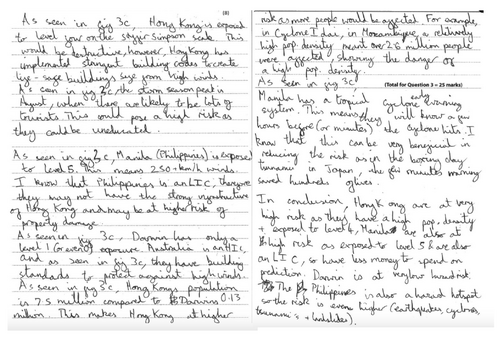 (8)
As seen in fig 3c, Hong Kong is exposed
to level 4 on the saffir simpson scale. This
would be destructive, however, Hong Kong has
implemented stringent building codes to create
life-safe buildings safe from high winds.
As seen in fig 2c, the storm season peak is
August, when there are likely to be lots of
tourists. This could pose a high risk as
they could be uneducated.
As seen in fig 3c, Manila (Philippines) is exposed
to level 5. This means 250+km/h winds.
I know that Philippines is an LIC, therefore
they may not have the strong infrastructure
of Hong Kong and may be at higher risk of
property damage.
As seen in fig 3c, Darwin has only a
level 1 (Green) exposure. Australia is an HIC,
and as seen in fig 3c, they have building
standards to protect against high winds.
As seen in fig 3c, Hong Kong's population
is 7.5 million compared to Darwins 0.13
million. This makes Hong Kong at higher
risk as more people would be affected. For example,
in Cyclone Idai, in Mozambique, a relatively
high pop density meant over 2.6 million people
were affected, showing the danger of
a high pop. density.
As seen in fig 3c
(Total for Question 3 = 25 marks)
Manila has a tropical cyclone early warning
system. This means they will know a few
hours before (or minutes) the cyclone hits. I
know that this can be very beneficial in
reducing the risk as in the boxing day
tsunami in Japan, the few minutes warning
saved hundreds of lives.
In conclusion, Hong Kong are at very
high risk as they have a high pop, density
+ exposed to level 4, Manila are also at
high risk as exposed to level 5 & are also
an LIC, so have less money to spend on
prediction. Darwin is at very low hazard risk.
The Philippines is also a hazard hotspot
so the risk is even higher (earthquakes, cyclones,
tsunami's + landslides).